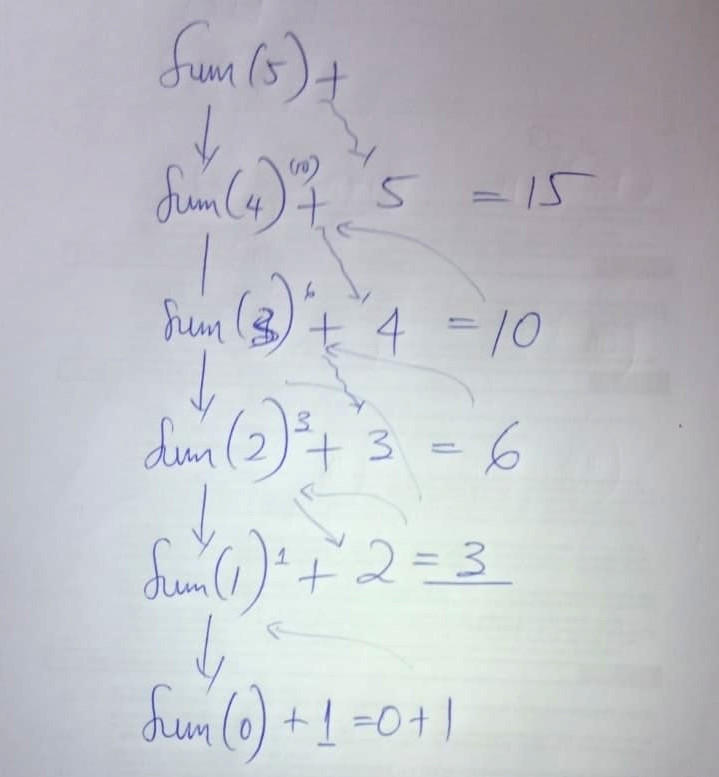 Sum(5)+
Sum(4)(10)+ 5 = 15
Sum(3)6+ 4 = 10
Sum(2)3+ 3 = 6
Sum(1)1+ 2 = 3
Sum(0)+1=0+1